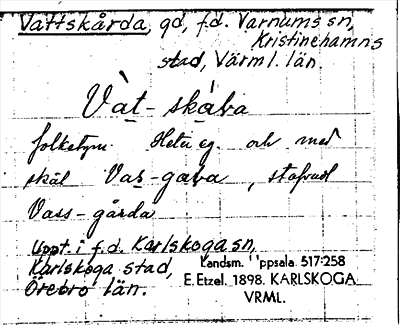 Vattskårda, gd, f.d. Varnums sn,
Kristinehamns
stad, Värml. län.
Vàt-skàba
folketym. Heter eg. och med
skäl Vas-gaba, stafvad
Vass-gårda
Uppt. i f.d. Karlskoga sn,
Karlskoga stad,
Örebro län.
Landsm. Uppsala 517:258
E. Etzel. 1898. KARLSKOGA
VRML.